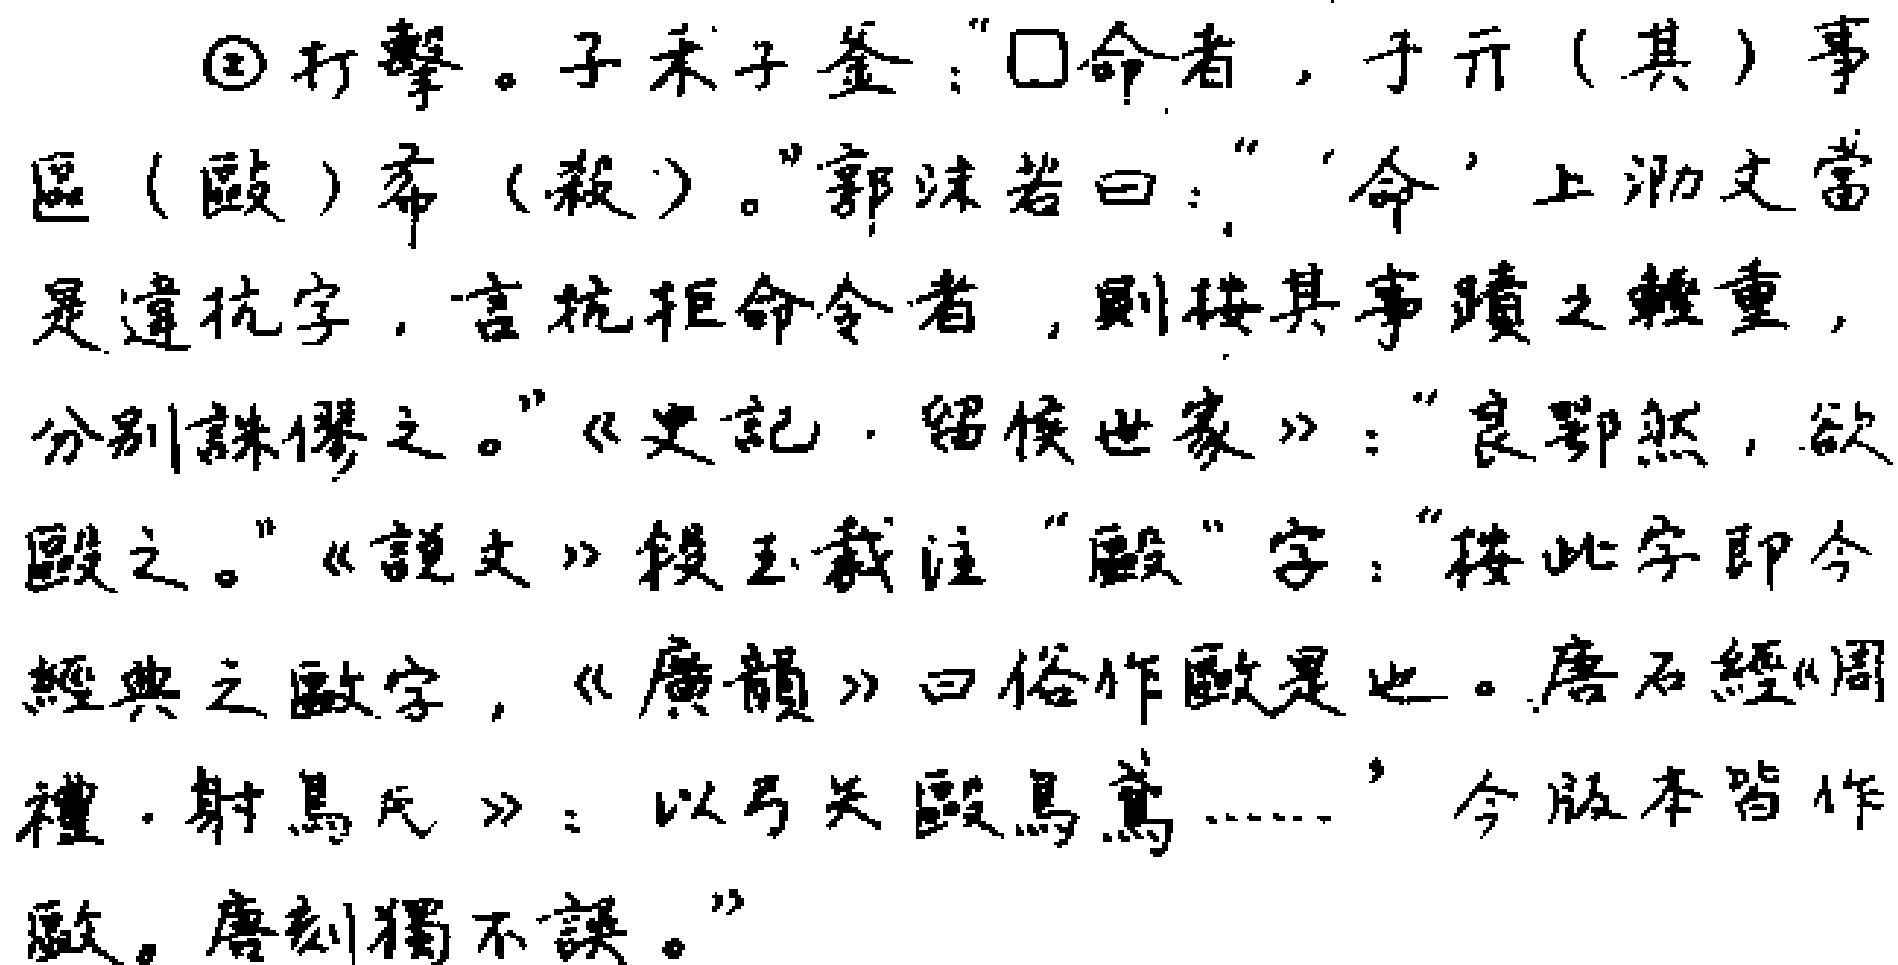 ②打擊。子禾子釜：“□命者，于亓（其）事
區（毆）㣇（殺）。”郭沫若曰：“‘命’上泐文當
是違抗字，言抗拒命令者，則按其事蹟之輕重，
分别誅僇之。”《史記·留侯世家》：“良鄂然，欲
毆之。”《説文》段玉裁注“毆”字：“按此字即今
經典之敺字，《廣韻》曰俗作敺是也。唐石經《周
禮·射鳥氏》：以弓矢毆鳥鳶……’今版本皆作
敺。唐刻獨不誤。”